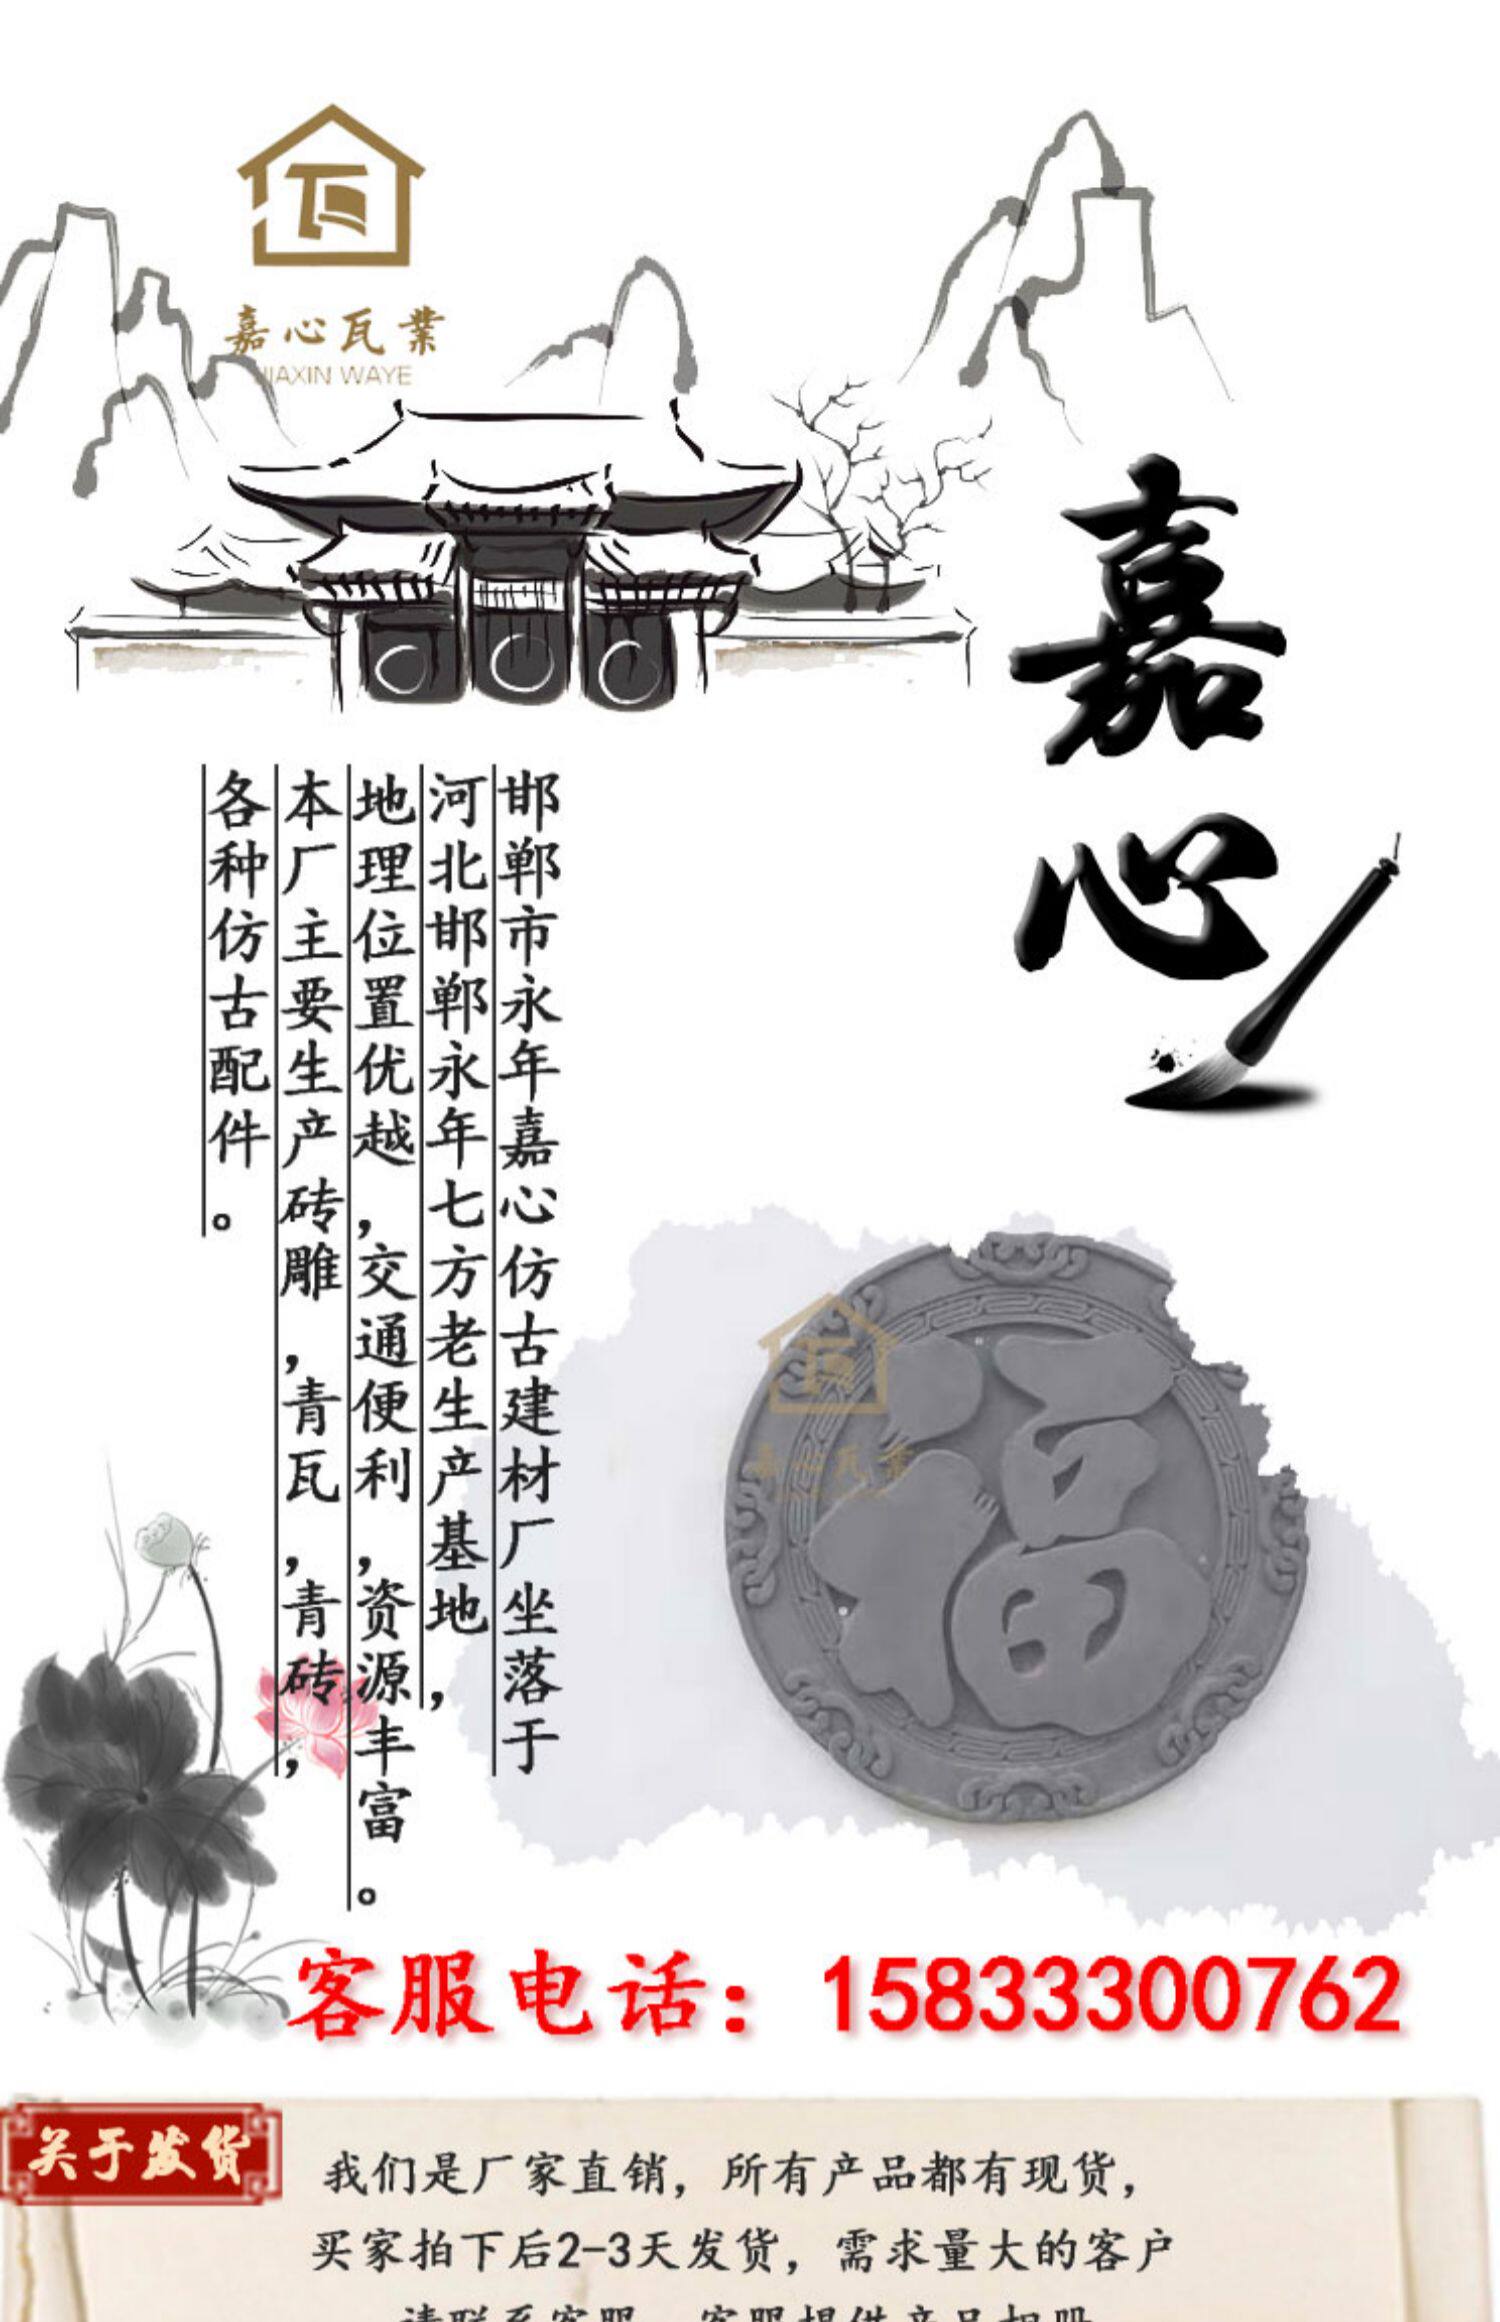 嘉心瓦業
JIAXIN WAYE
嘉心
邯郸市永年嘉心仿古建材厂坐落于
河北邯郸永年七方老生产基地，
地理位置优越，交通便利，资源丰富。
本厂主要生产砖雕，青瓦，青砖，
各种仿古配件。
福
嘉心瓦業
客服电话：15833300762
关于发货
我们是厂家直销，所有产品都有现货，
买家拍下后2-3天发货，需求量大的客户